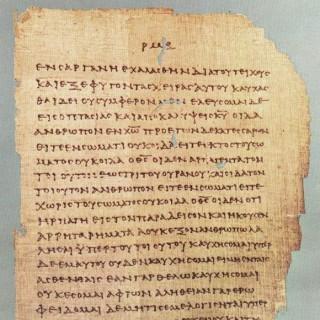 ΡΜϚ
ΕΝ ϹΑΡΓΑΝΗ ΕΧΑΛΑϹΘΗΝ ΔΙΑ ΤΟΥ ΤΕΙΧΟΥϹ
ΚΑΙ ΕΞΕΦΥΓΟΝ ΤΑϹ ΧΕΙΡΑϹ ΑΥΤΟΥ ΚΑΥΧΑϹ
ΘΑΙ ΔΕΙ ΟΥ ϹΥΜΦΕΡΟΝ ΜΕΝ ΕΛΕΥϹΟΜΑΙ ΔΕ
ΕΙϹ ΟΠΤΑϹΙΑϹ ΚΑΙ ΑΠΟΚΑΛΥΨΕΙϹ Κ̅Υ̅ ΟΙΔΑ
ΑΝΘΡΩΠΟΝ ΕΝ Χ̅Ω̅ ΠΡΟ ΕΤΩΝ ΔΕΚΑΤΕϹϹΑΡΩΝ
ΕΙΤΕ ΕΝ ϹΩΜΑΤΙ ΟΥΚ ΟΙΔΑ ΕΙΤΕ ΕΚΤΟϹ ΤΟΥ ϹΩ
ΜΑΤΟϹ ΟΥΚ ΟΙΔΑ Ο Θ̅Ϲ̅ ΟΙΔΕΝ ΑΡΠΑΓΕΝΤΑ ΤΟΝ
ΤΟΙΟΥΤΟΝ ΕΩϹ ΤΡΙΤΟΥ ΟΥΡΑΝΟΥ ΚΑΙ ΟΙΔΑ ΤΟΝ
ΤΟΙΟΥΤΟΝ ΑΝΘΡΩΠΟΝ ΕΙΤΕ ΕΝ ϹΩΜΑΤΙ ΕΙΤΕ
ΧΩΡΙϹ ΤΟΥ ϹΩΜΑΤΟϹ ΟΥΚ ΟΙΔΑ Ο Θ̅Ϲ̅ ΟΙΔΕΝ ΟΤΙ
ΗΡΠΑΓΗ ΕΙϹ ΤΟΝ ΠΑΡΑΔΕΙϹΟΝ ΚΑΙ ΗΚΟΥϹΕΝ
ΑΡΡΗΤΑ ΡΗΜΑΤΑ Α ΟΥΚ ΕΞΟΝ ΑΝΘΡΩΠΩ ΛΑ
ΛΗϹΑΙ ΥΠΕΡ ΤΟΥ ΤΟΙΟΥΤΟΥ ΚΑΥΧΗϹΟΜΑΙ ΥΠΕΡ
ΔΕ ΕΜΑΥΤΟΥ ΟΥΔΕΝ ΚΑΥΧΗϹΟΜΑΙ ΕΙ ΜΗ ΕΝ ΤΑΙϹ
ΑϹΘΕΝΕΙΑΙϹ ΕΑΝ ΓΑΡ ΘΕΛΩ ΚΑΥΧΗϹΟΜΑΙ
ΟΥΚ ΕϹΟΜΑΙ ΑΦΡΩΝ ΑΛΗΘΕΙΑΝ ΓΑΡ ΕΡΩ
ΦΕΙΔΟΜΑΙ ΔΕ ΜΗ ΤΙϹ ΕΜΕ ΛΟΓΙϹΗΤΑΙ ΥΠΕΡ